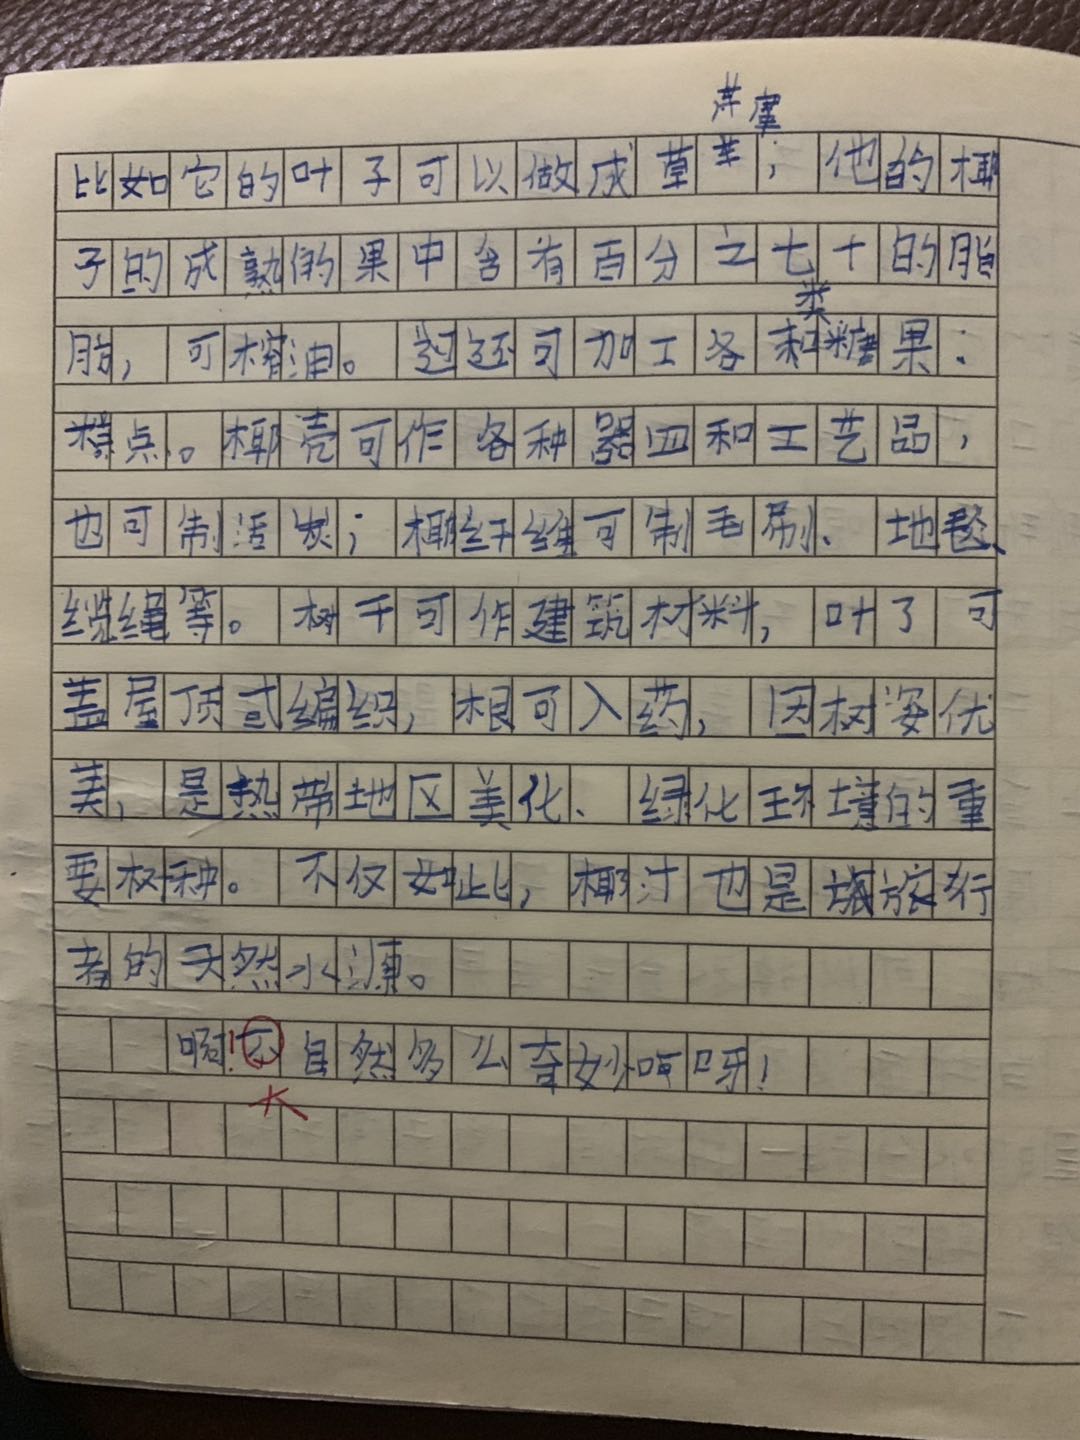 比如它的叶子可以做成草羊；他的椰
子的成熟的果中含有百分之七十的脂
脂，可榨油。过还可加工各和类糖果：
糕点。椰壳可作各种器皿和工艺品，
也可制活炭；椰纤维可制毛刷、地毯、
缆绳等。树干可作建筑材料，叶了可
盖屋顶或编织，根可入药，因树姿优
美，是热带地区美化、绿化环境的重
要树种。不仅如此，椰汁也是旅行
者的天然水源。
啊！不自然多么奇妙呵呀！
大